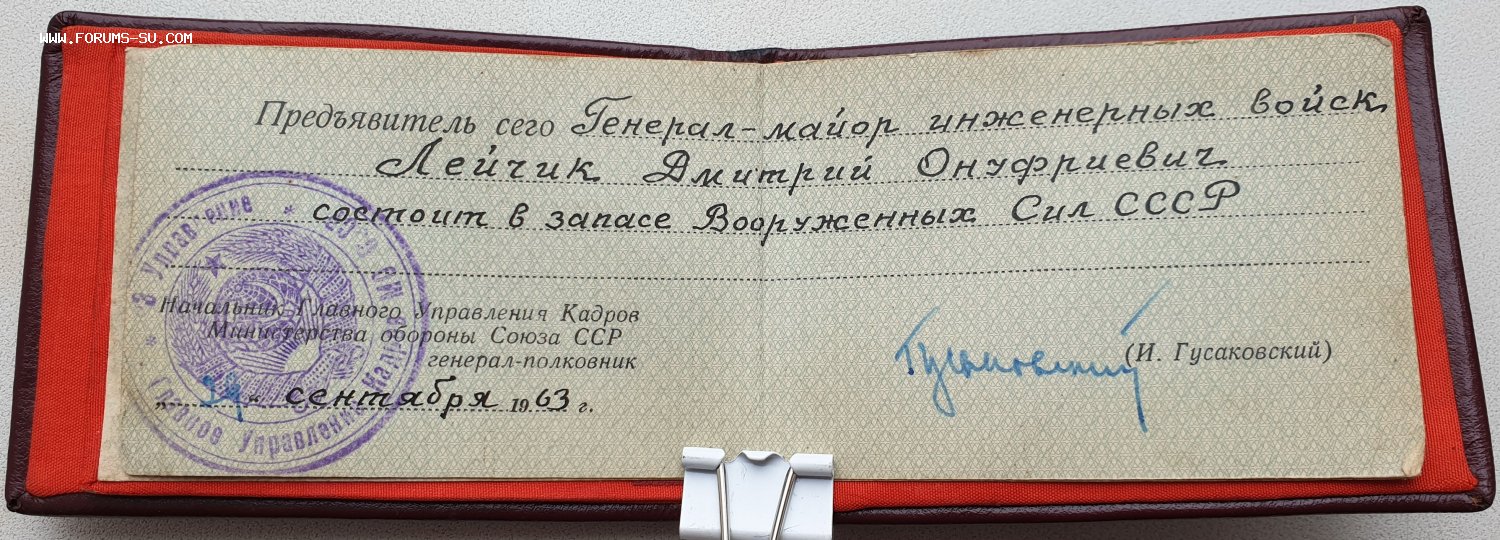 WWW.FORUMS-SU.COM
Предъявитель сего Генерал-майор инженерных войск
Лейчик Дмитрий Онуфриевич
состоит в запасе Вооруженных Сил СССР
Начальник Главного Управления Кадров
Министерства обороны Союза ССР
генерал-полковник
(И. Гусаковский)
„ “ сентября 1963 г.
* 3 Управление *
Главное Управление Кадров